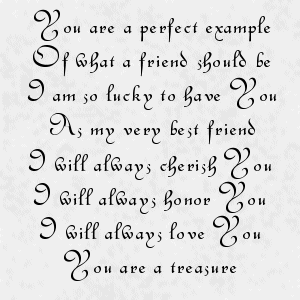 You are a perfect example
Of what a friend should be
I am so lucky to have You
As my very best friend
I will always cherish You
I will always honor You
I will always love You
You are a treasure